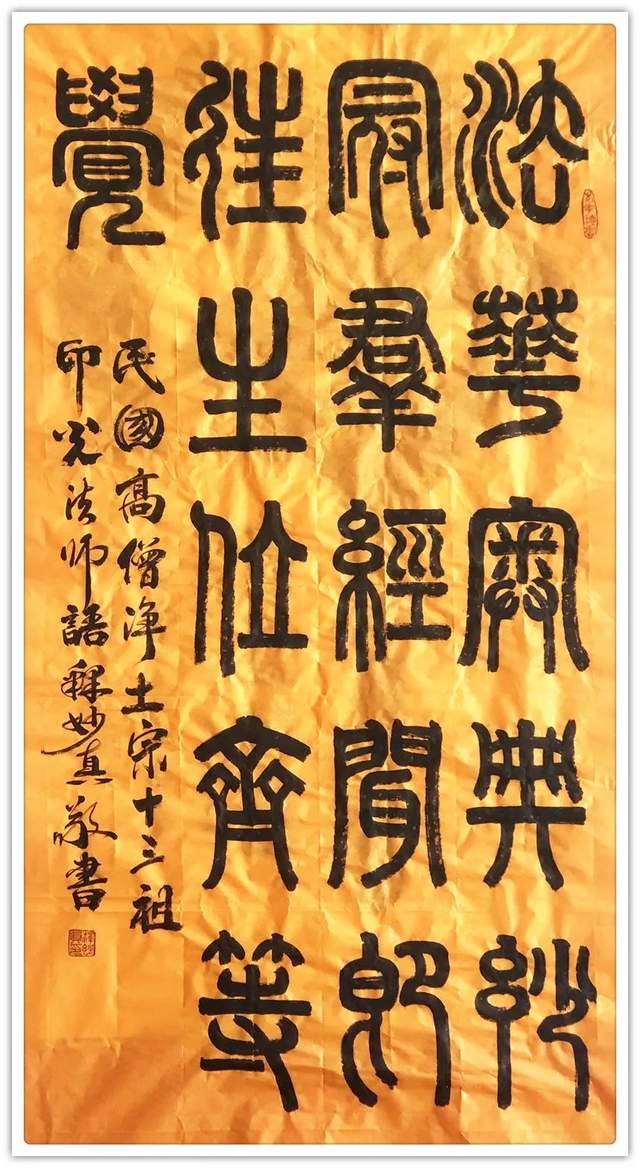 法華奧典妙
冠羣經聞即
往生位齊等
覺
民國高僧淨土宗十三祖
印光法師語釋妙真敬書